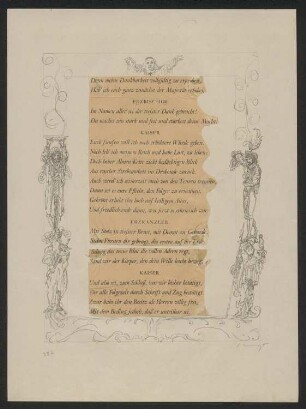 Denn meine Dankbarkeit vollgültig zu erproben,
Hab' ich euch ganz zunächst der Majestät erhoben.
ERZBISCHOF
Im Namen aller sei dir tiefster Dank gebracht!
Du machst uns stark und fest und stärkest deine Macht.
KAISER
Euch fünfen will ich noch erhöhtere Würde geben.
Noch leb' ich meinem Reich und habe Lust, zu leben;
Doch hoher Ahnen Kette zieht bedächtigen Blick
Aus rascher Strebsamkeit ins Drohende zurück.
Auch werd' ich seinerzeit mich von den Teuren trennen,
Dann sei es eure Pflicht, den Folger zu ernennen.
Gekrönt erhebt ihn hoch auf heiligem Altar,
Und friedlich ende dann, was jetzt so stürmisch war.
ERZKANZLER
Mit Stolz in tiefster Brust, mit Demut an Gebärde,
Stehn Fürsten dir gebeugt, die ersten auf der Erde.
Solang das treue Blut die vollen Adern regt,
Sind wir der Körper, den dein Wille leicht bewegt.
KAISER
Und also sei, zum Schluß, was wir bisher betätigt,
Für alle Folgezeit durch Schrift und Zug bestätigt.
Zwar habt ihr den Besitz als Herren völlig frei,
Mit dem Beding jedoch, daß er unteilbar sei.